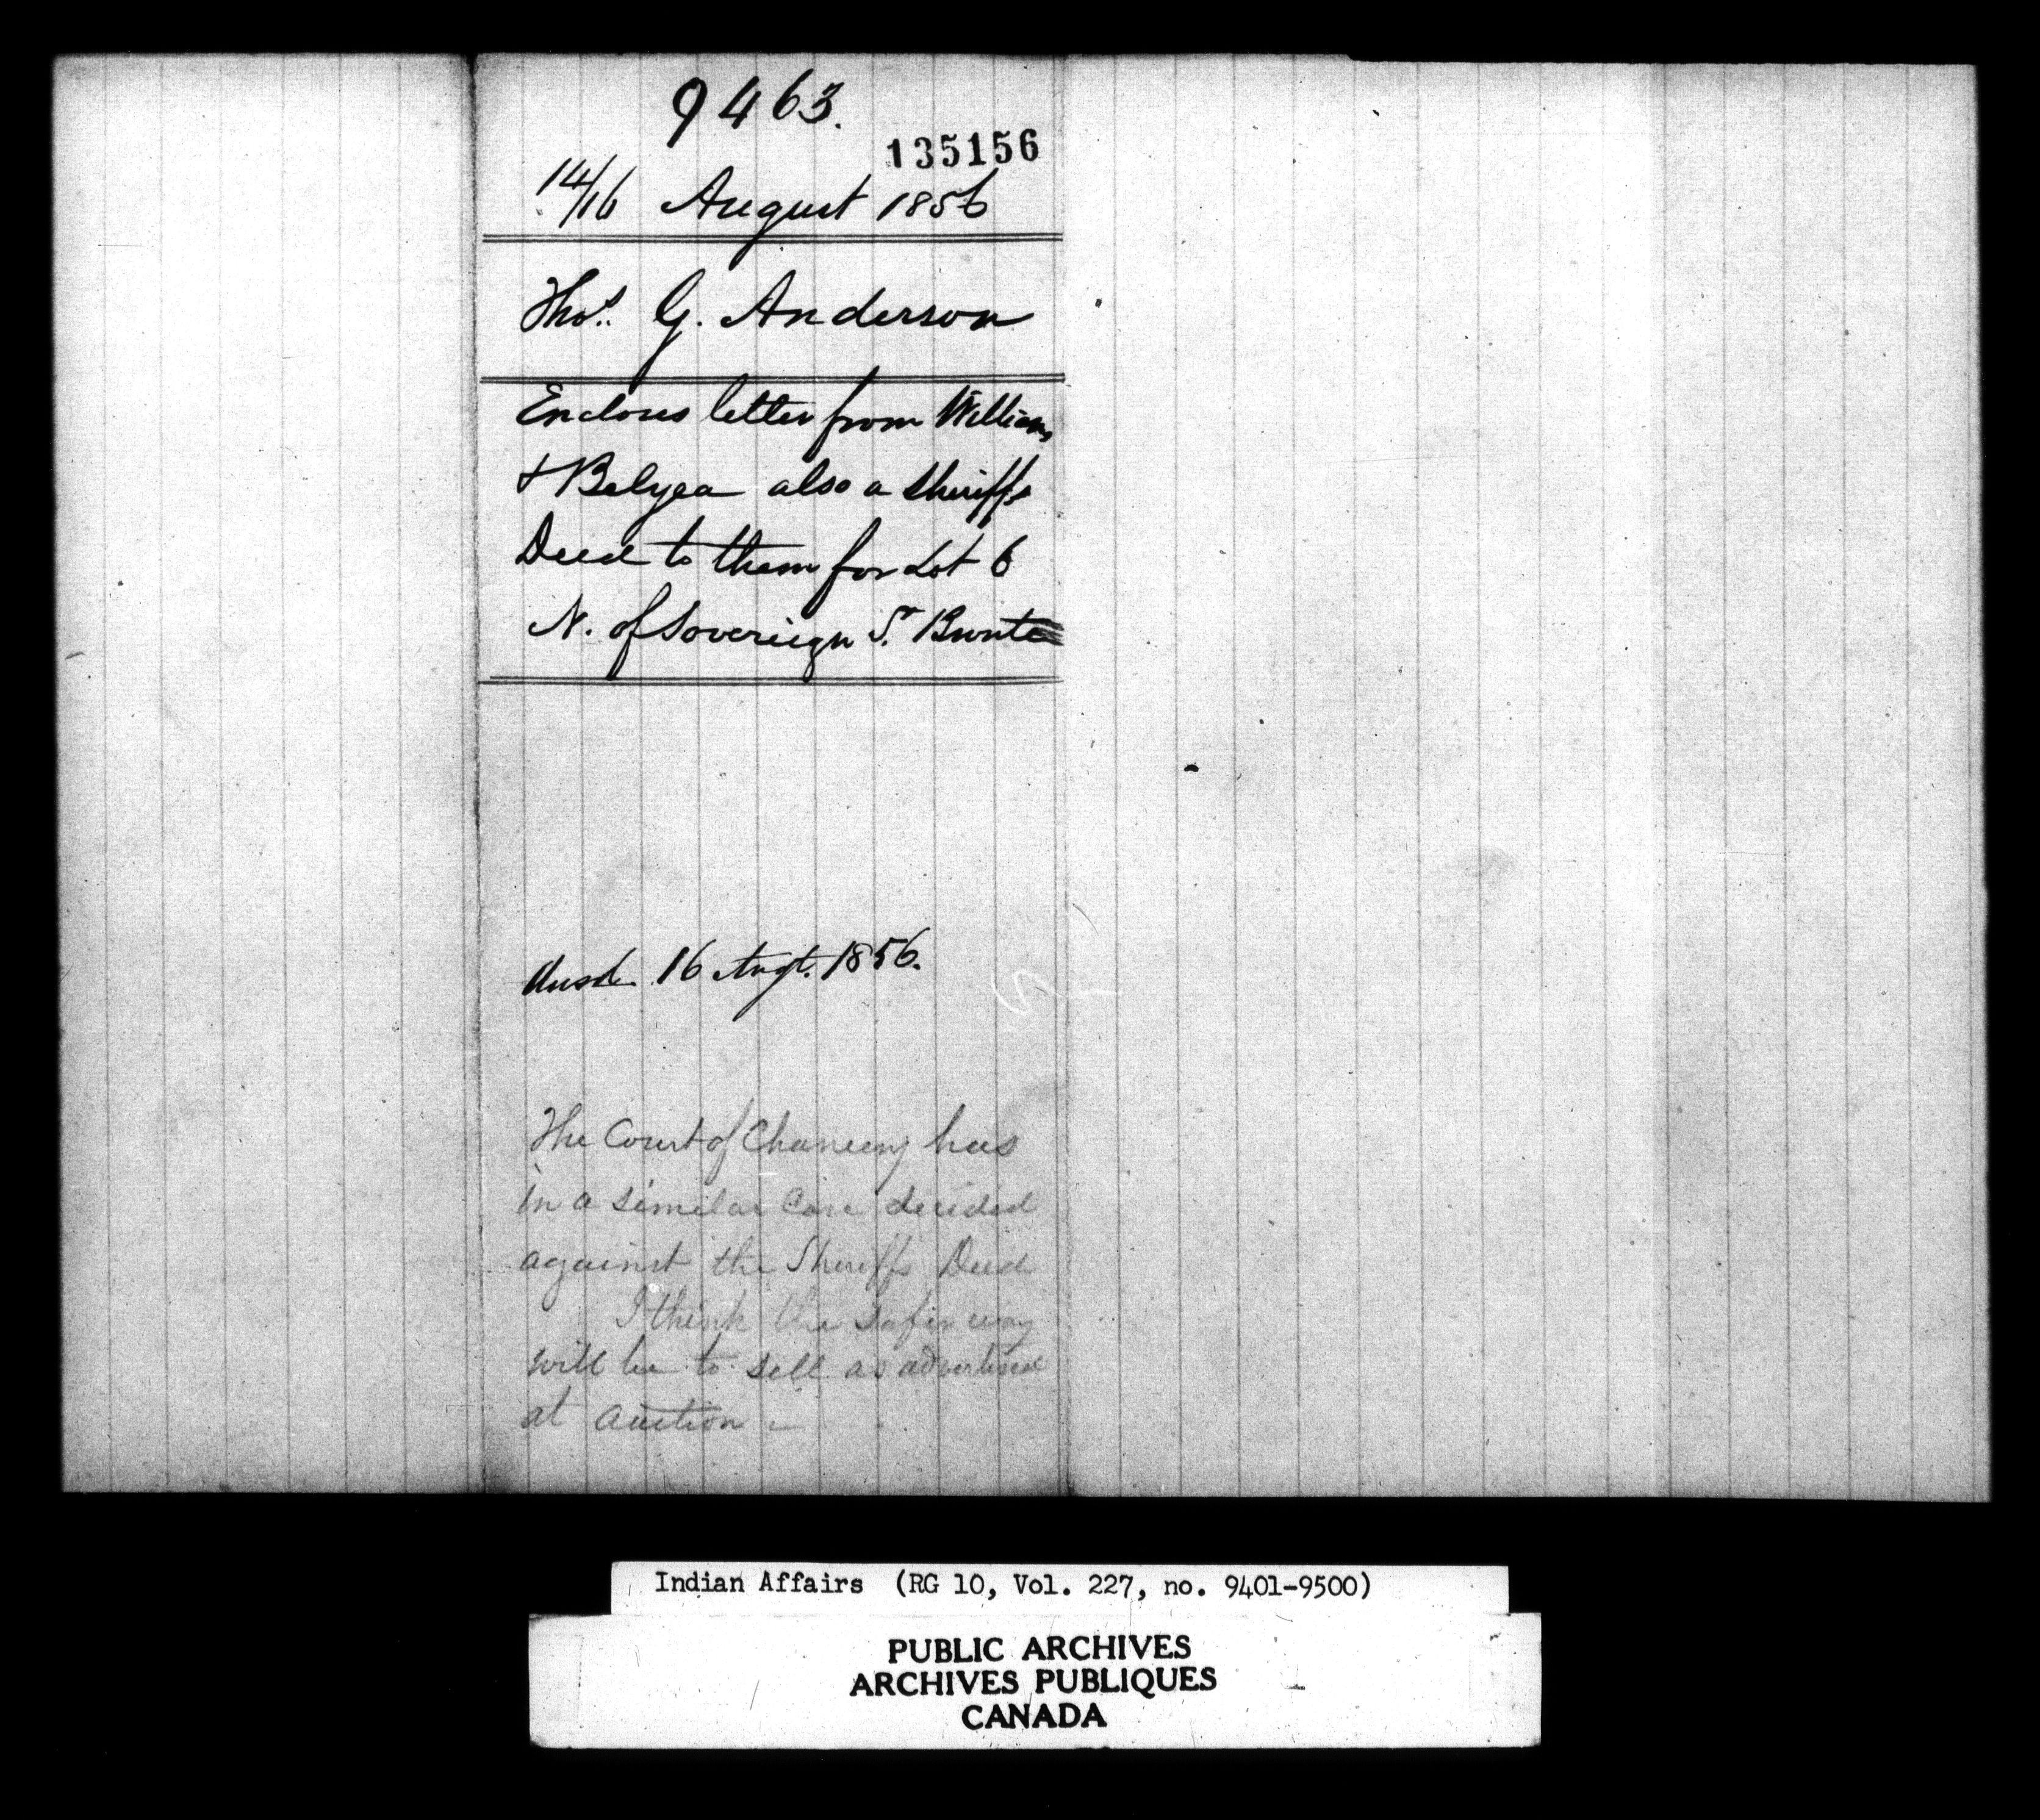 9463.
135156
14/16 August 1856
Thos. G. Anderson
Encloses letter from Williams
& Belyea also a Sheriffs
Deed to them for Lot 6
N. of Sovereign St.
Ansd. 16 Augt. 1856.
The Court of Chancery has
in a similar Case decided
against the Sheriffs Deed
I think the safer way
will be to sell as advertised
at auction -
Indian Affairs (RG 10, Vol. 227, no. 9401-9500)
PUBLIC ARCHIVES
ARCHIVES PUBLIQUES
CANADA